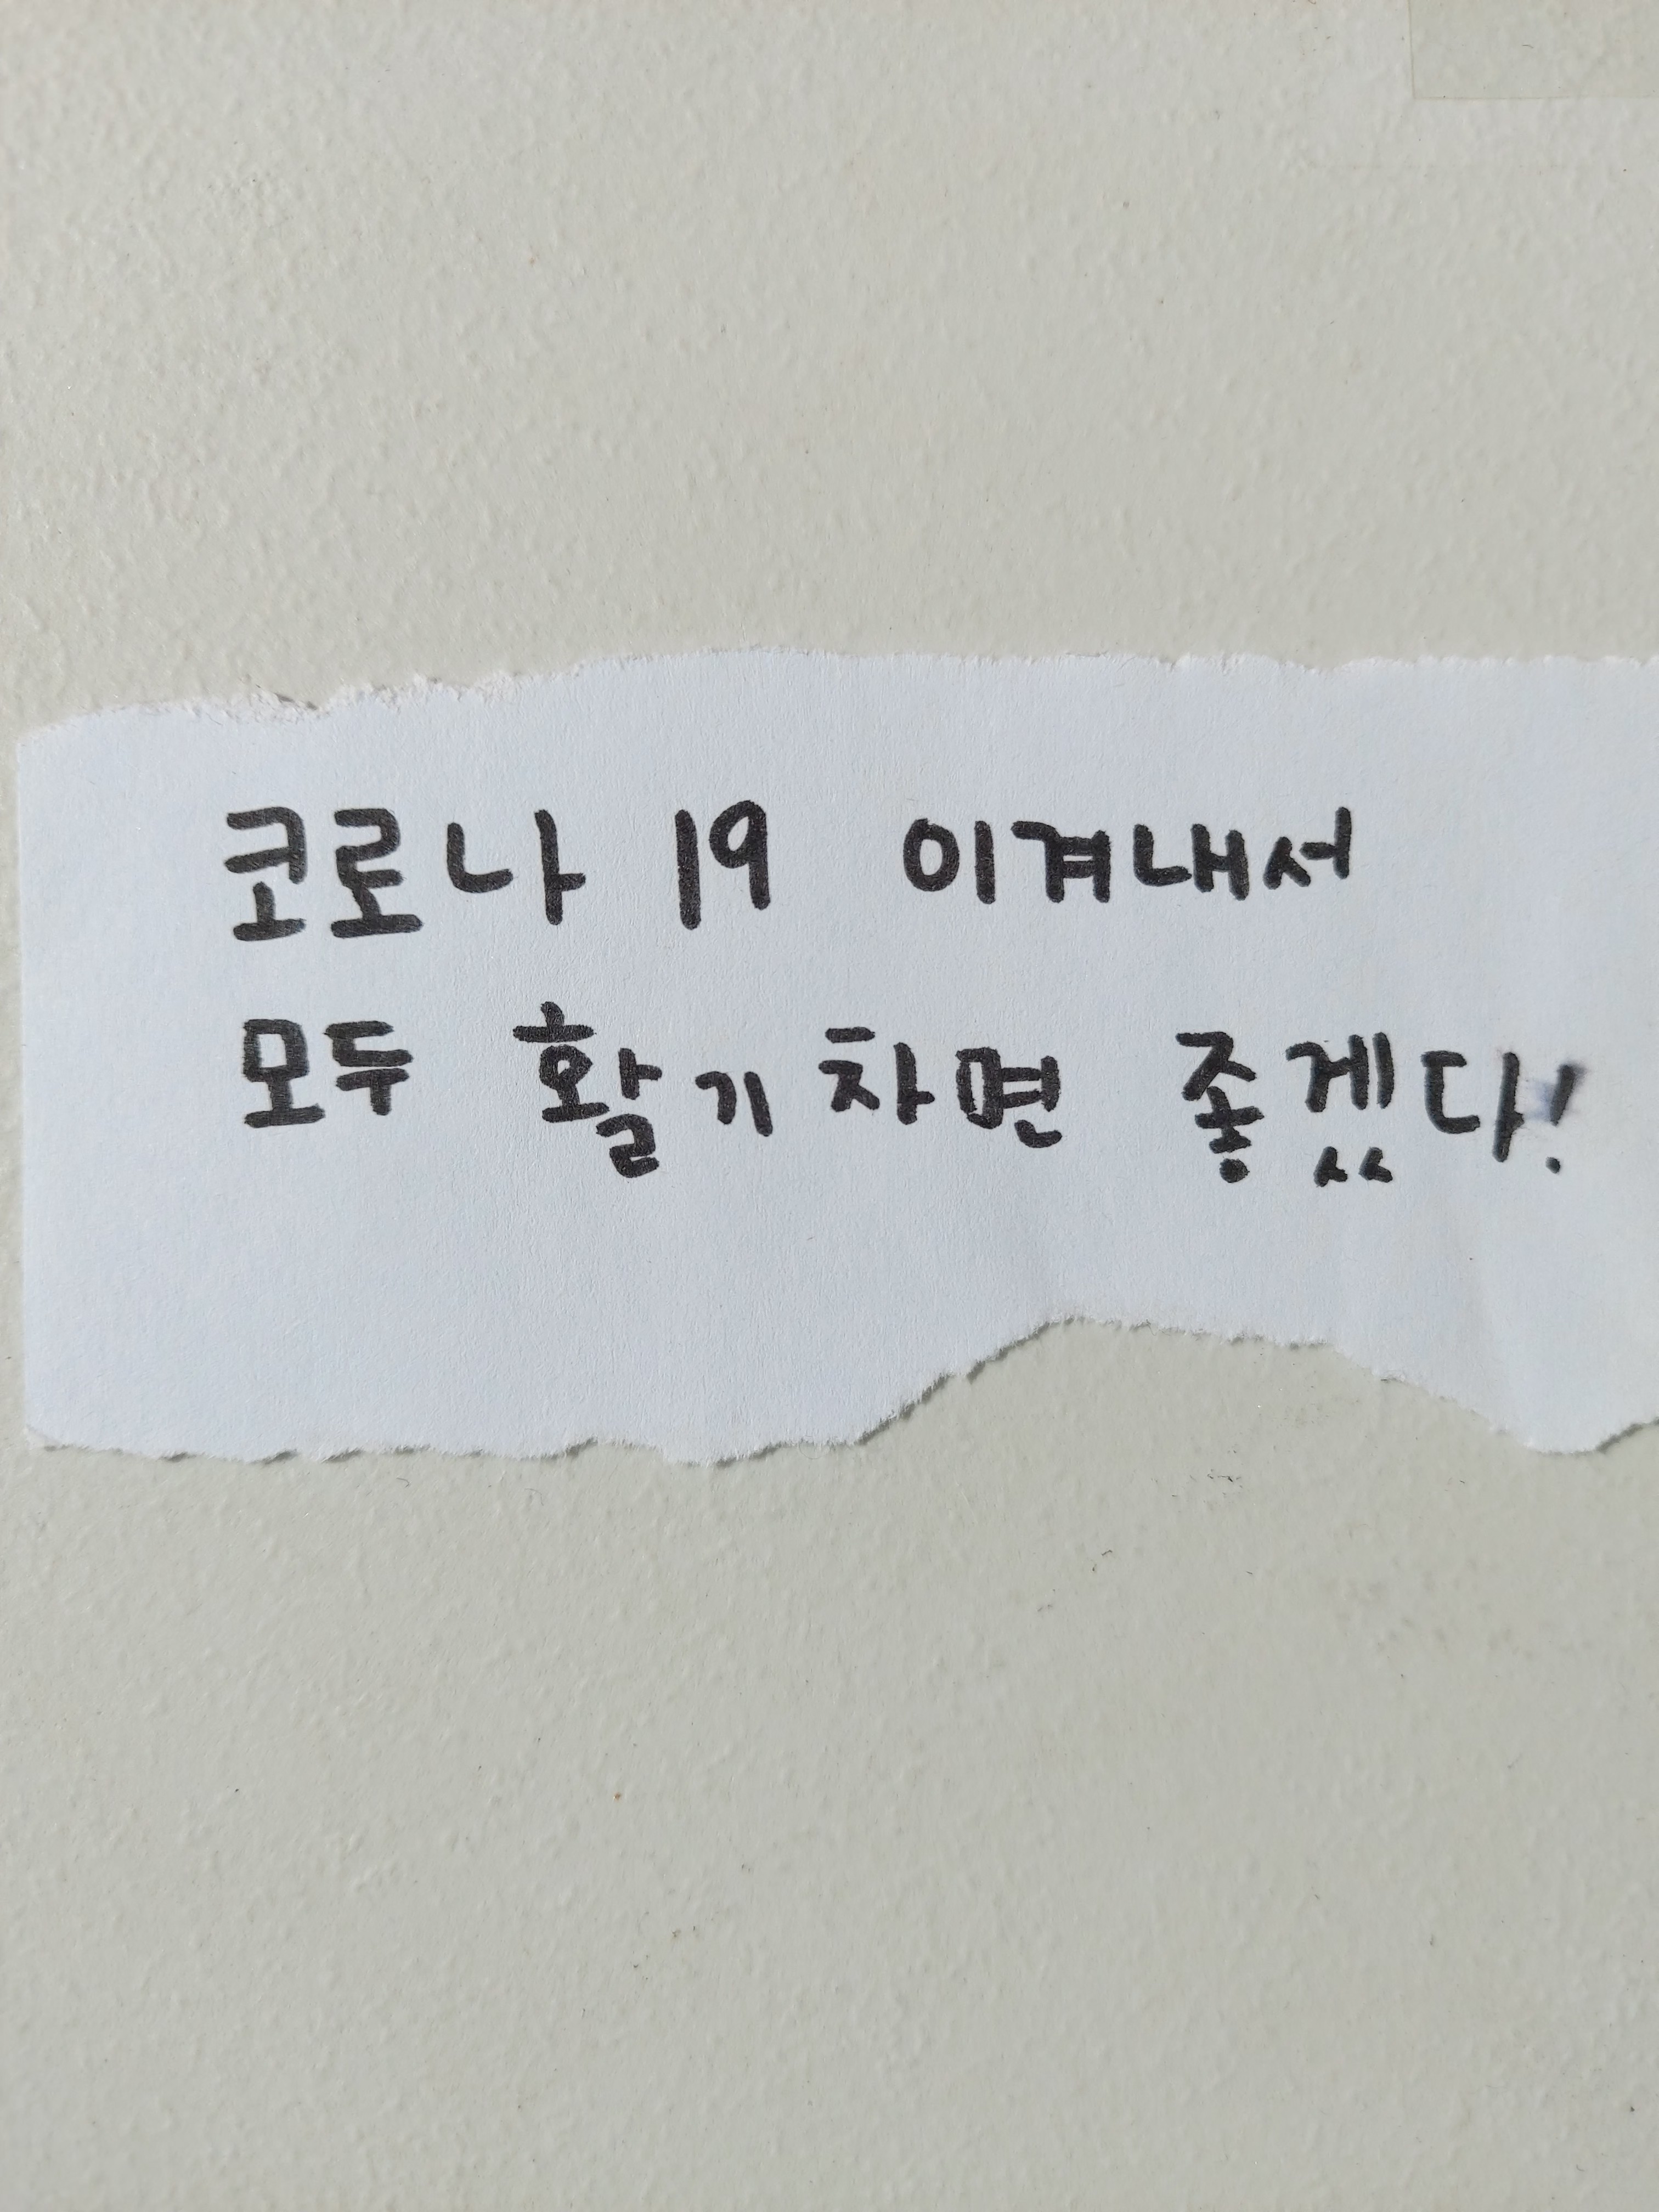 코로나 19 이겨내서
모두 활기차면 좋겠다!